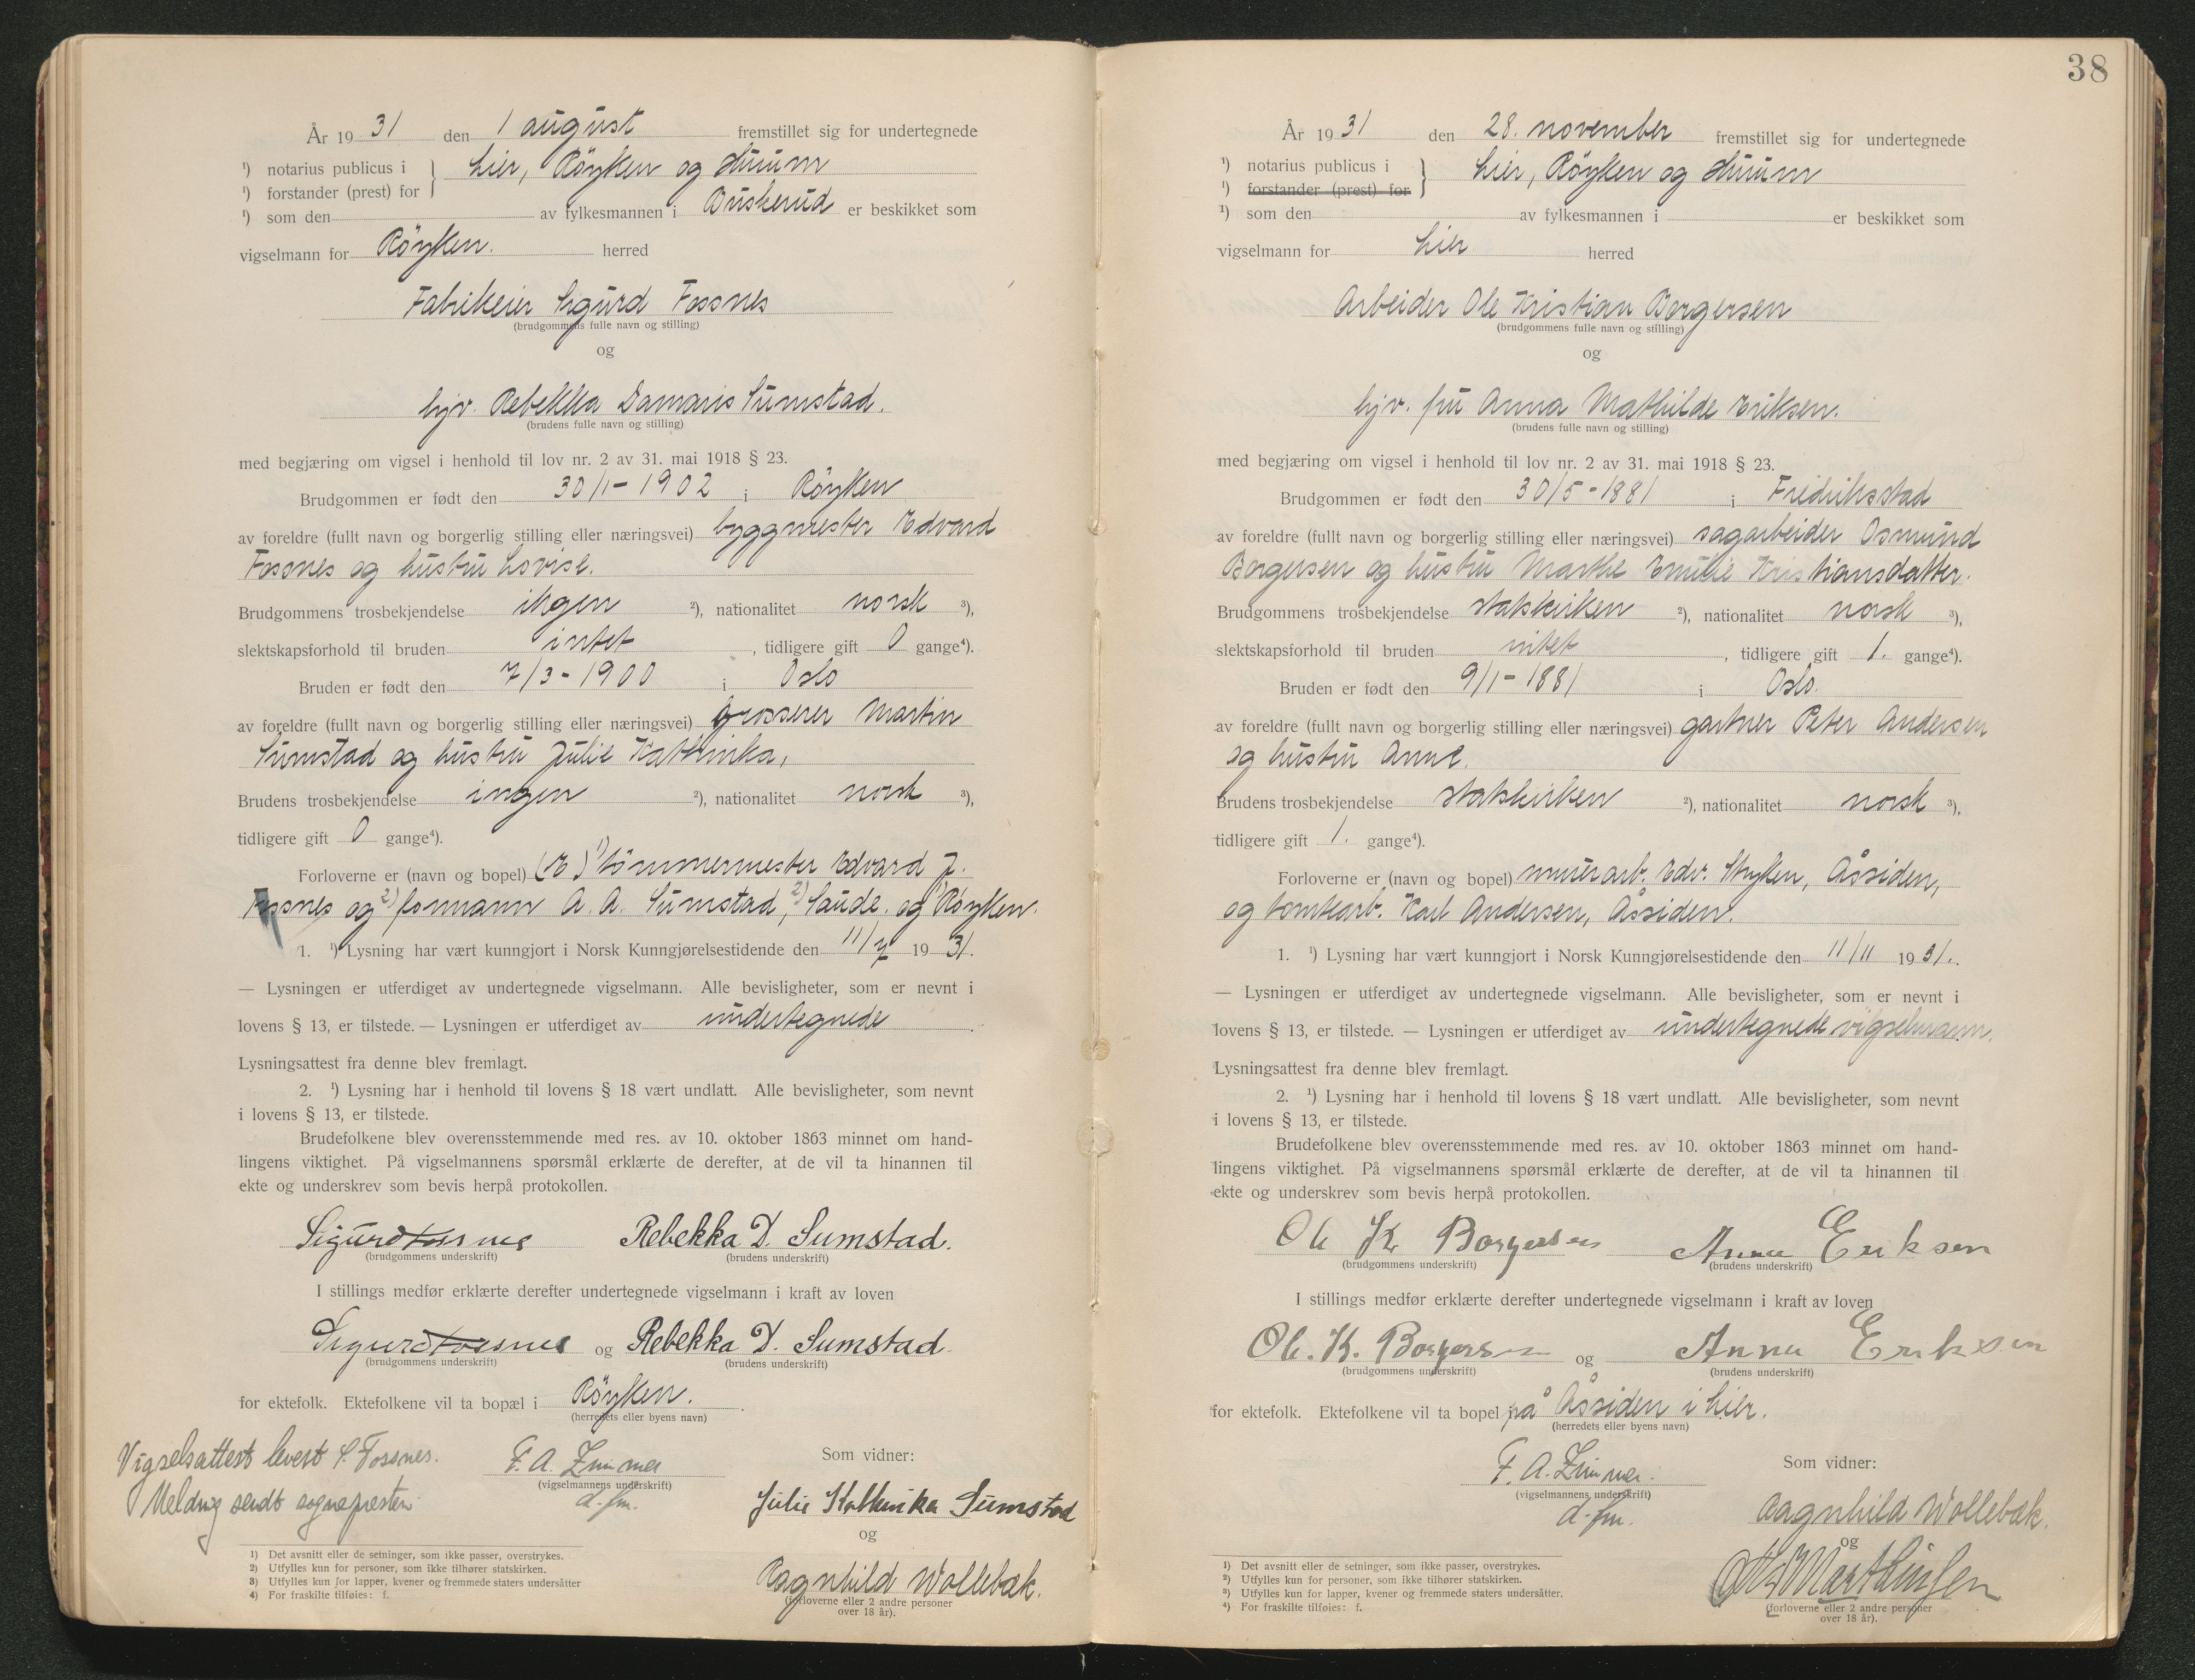 År 19 31 den 1 august fremstillet sig for undertegnede
¹) notarius publicus i } Lier, Röyken og Hurum
¹) forstander (prest) for
¹) som den av fylkesmannen i Buskerud er beskikket som
vigselmann for Röyken. herred
Fabrikeier Sigurd Fossnes
(brudgommens fulle navn og stilling)
og
hjv. Rebekka Damaris Sumstad.
(brudens fulle navn og stilling)
med begjæring om vigsel i henhold til lov nr. 2 av 31. mai 1918 § 23.
Brudgommen er født den 30/1-1902 i Röyken
av foreldre (fullt navn og borgerlig stilling eller næringsvei) byggmester Edvard
Fossnes og hustru Lovise.
Brudgommens trosbekjendelse ingen ²), nationalitet norsk ³),
slektskapsforhold til bruden intet, tidligere gift 0 gange⁴).
Bruden er født den 7/3-1900 i Oslo
av foreldre (fullt navn og borgerlig stilling eller næringsvei) grosserer Martin
Sumstad og hustru Julie Kathinka,
Brudens trosbekjendelse ingen ²), nationalitet norsk ³),
tidligere gift 0 gange⁴).
Forloverne er (navn og bopel) (E) ¹) tömmermester Edvard J.
Fossnes og ²) formann A. A. Sumstad, ²) Saude. og ¹) Röyken.
1. ¹) Lysning har vært kunngjort i Norsk Kunngjørelsestidende den 11/7 19 31.
— Lysningen er utferdiget av undertegnede vigselmann. Alle bevisligheter, som er nevnt i
lovens § 13, er tilstede. — Lysningen er utferdiget av undertegnede.
Lysningsattest fra denne blev fremlagt.
2. ¹) Lysning har i henhold til lovens § 18 vært undlatt. Alle bevisligheter, som nevnt
i lovens § 13, er tilstede.
Brudefolkene blev overensstemmende med res. av 10. oktober 1863 minnet om hand-
lingens viktighet. På vigselmannens spørsmål erklærte de derefter, at de vil ta hinannen til
ekte og underskrev som bevis herpå protokollen.
Sigurd Fossnes Rebekka D. Sumstad.
(brudgommens underskrift) (brudens underskrift)
I stillings medfør erklærte derefter undertegnede vigselmann i kraft av loven
Sigurd Fossnes og Rebekka D. Sumstad
(brudgommens underskrift) (brudens underskrift)
for ektefolk. Ektefolkene vil ta bopæl i Röyken.
(herredets eller byens navn)
Vigselsattest levert S. Fossnes.
Meldng sendt sognepresten
F. A. Zimmer
(vigselmannens underskrift)
d. fm.
Som vidner:
Julie Kathinka Sumstad
og
Ragnhild Wollebæk.
(forloverne eller 2 andre personer
over 18 år).
1) Det avsnitt eller de setninger, som ikke passer, overstrykes.
2) Utfylles kun for personer, som ikke tilhører statskirken.
3) Utfylles kun for lapper, kvener og fremmede staters undersåtter
4) For fraskilte tilføies: f.
38
År 19 31 den 28. november fremstillet sig for undertegnede
¹) notarius publicus i } Lier, Röyken og Hurum
¹) forstander (prest) for
¹) som den av fylkesmannen i er beskikket som
vigselmann for Lier herred
Arbeider Ole Kristian Borgersen
(brudgommens fulle navn og stilling)
og
hjv. fru Anna Mathilde Eriksen.
(brudens fulle navn og stilling)
med begjæring om vigsel i henhold til lov nr. 2 av 31. mai 1918 § 23.
Brudgommen er født den 30/5-1881 i Fredriksstad
av foreldre (fullt navn og borgerlig stilling eller næringsvei) sagarbeider Osmund
Borgersen og hustru Marthe Emilie Kristiansdatter.
Brudgommens trosbekjendelse statskirken ²), nationalitet norsk ³),
slektskapsforhold til bruden intet, tidligere gift 1. gange⁴).
Bruden er født den 9/1-1881 i Oslo.
av foreldre (fullt navn og borgerlig stilling eller næringsvei) gartner Peter Andersen
og hustru Anne.
Brudens trosbekjendelse statskirken ²), nationalitet norsk ³).
tidligere gift 1. gange⁴).
Forloverne er (navn og bopel) murerarb. Edv. Stryken, Åssiden,
og tomtearb. Karl Andersen, Åssiden.
1. ¹) Lysning har vært kunngjort i Norsk Kunngjørelsestidende den 11/11 19 31.
— Lysningen er utferdiget av undertegnede vigselmann. Alle bevisligheter, som er nevnt i
lovens § 13, er tilstede. — Lysningen er utferdiget av undertegnede vigselmann.
Lysningsattest fra denne blev fremlagt.
2. ¹) Lysning har i henhold til lovens § 18 vært undlatt. Alle bevisligheter, som nevnt
i lovens § 13, er tilstede.
Brudefolkene blev overensstemmende med res. av 10. oktober 1863 minnet om hand-
lingens viktighet. På vigselmannens spørsmål erklærte de derefter, at de vil ta hinannen til
ekte og underskrev som bevis herpå protokollen.
Ole Kr Borgersen Anna Eriksen
(brudgommens underskrift) (brudens underskrift)
I stillings medfør erklærte derefter undertegnede vigselmann i kraft av loven
Ole. K. Borgersen og Anna Eriksen
(brudgommens underskrift) (brudens underskrift)
for ektefolk. Ektefolkene vil ta bopel på Åssiden i Lier.
(herredets eller byens navn)
F. A. Zimmer.
(vigselmannens underskrift)
d. fm.
Som vidner:
Ragnhild Wollebæk.
og
(forloverne eller 2 andre personer
over 18 år).
1) Det avsnitt eller de setninger, som ikke passer, overstrykes.
2) Utfylles kun for personer, som ikke tilhører statskirken.
3) Utfylles kun for lapper, kvener og fremmede staters undersåtter.
4) For fraskilte tilføies: f.